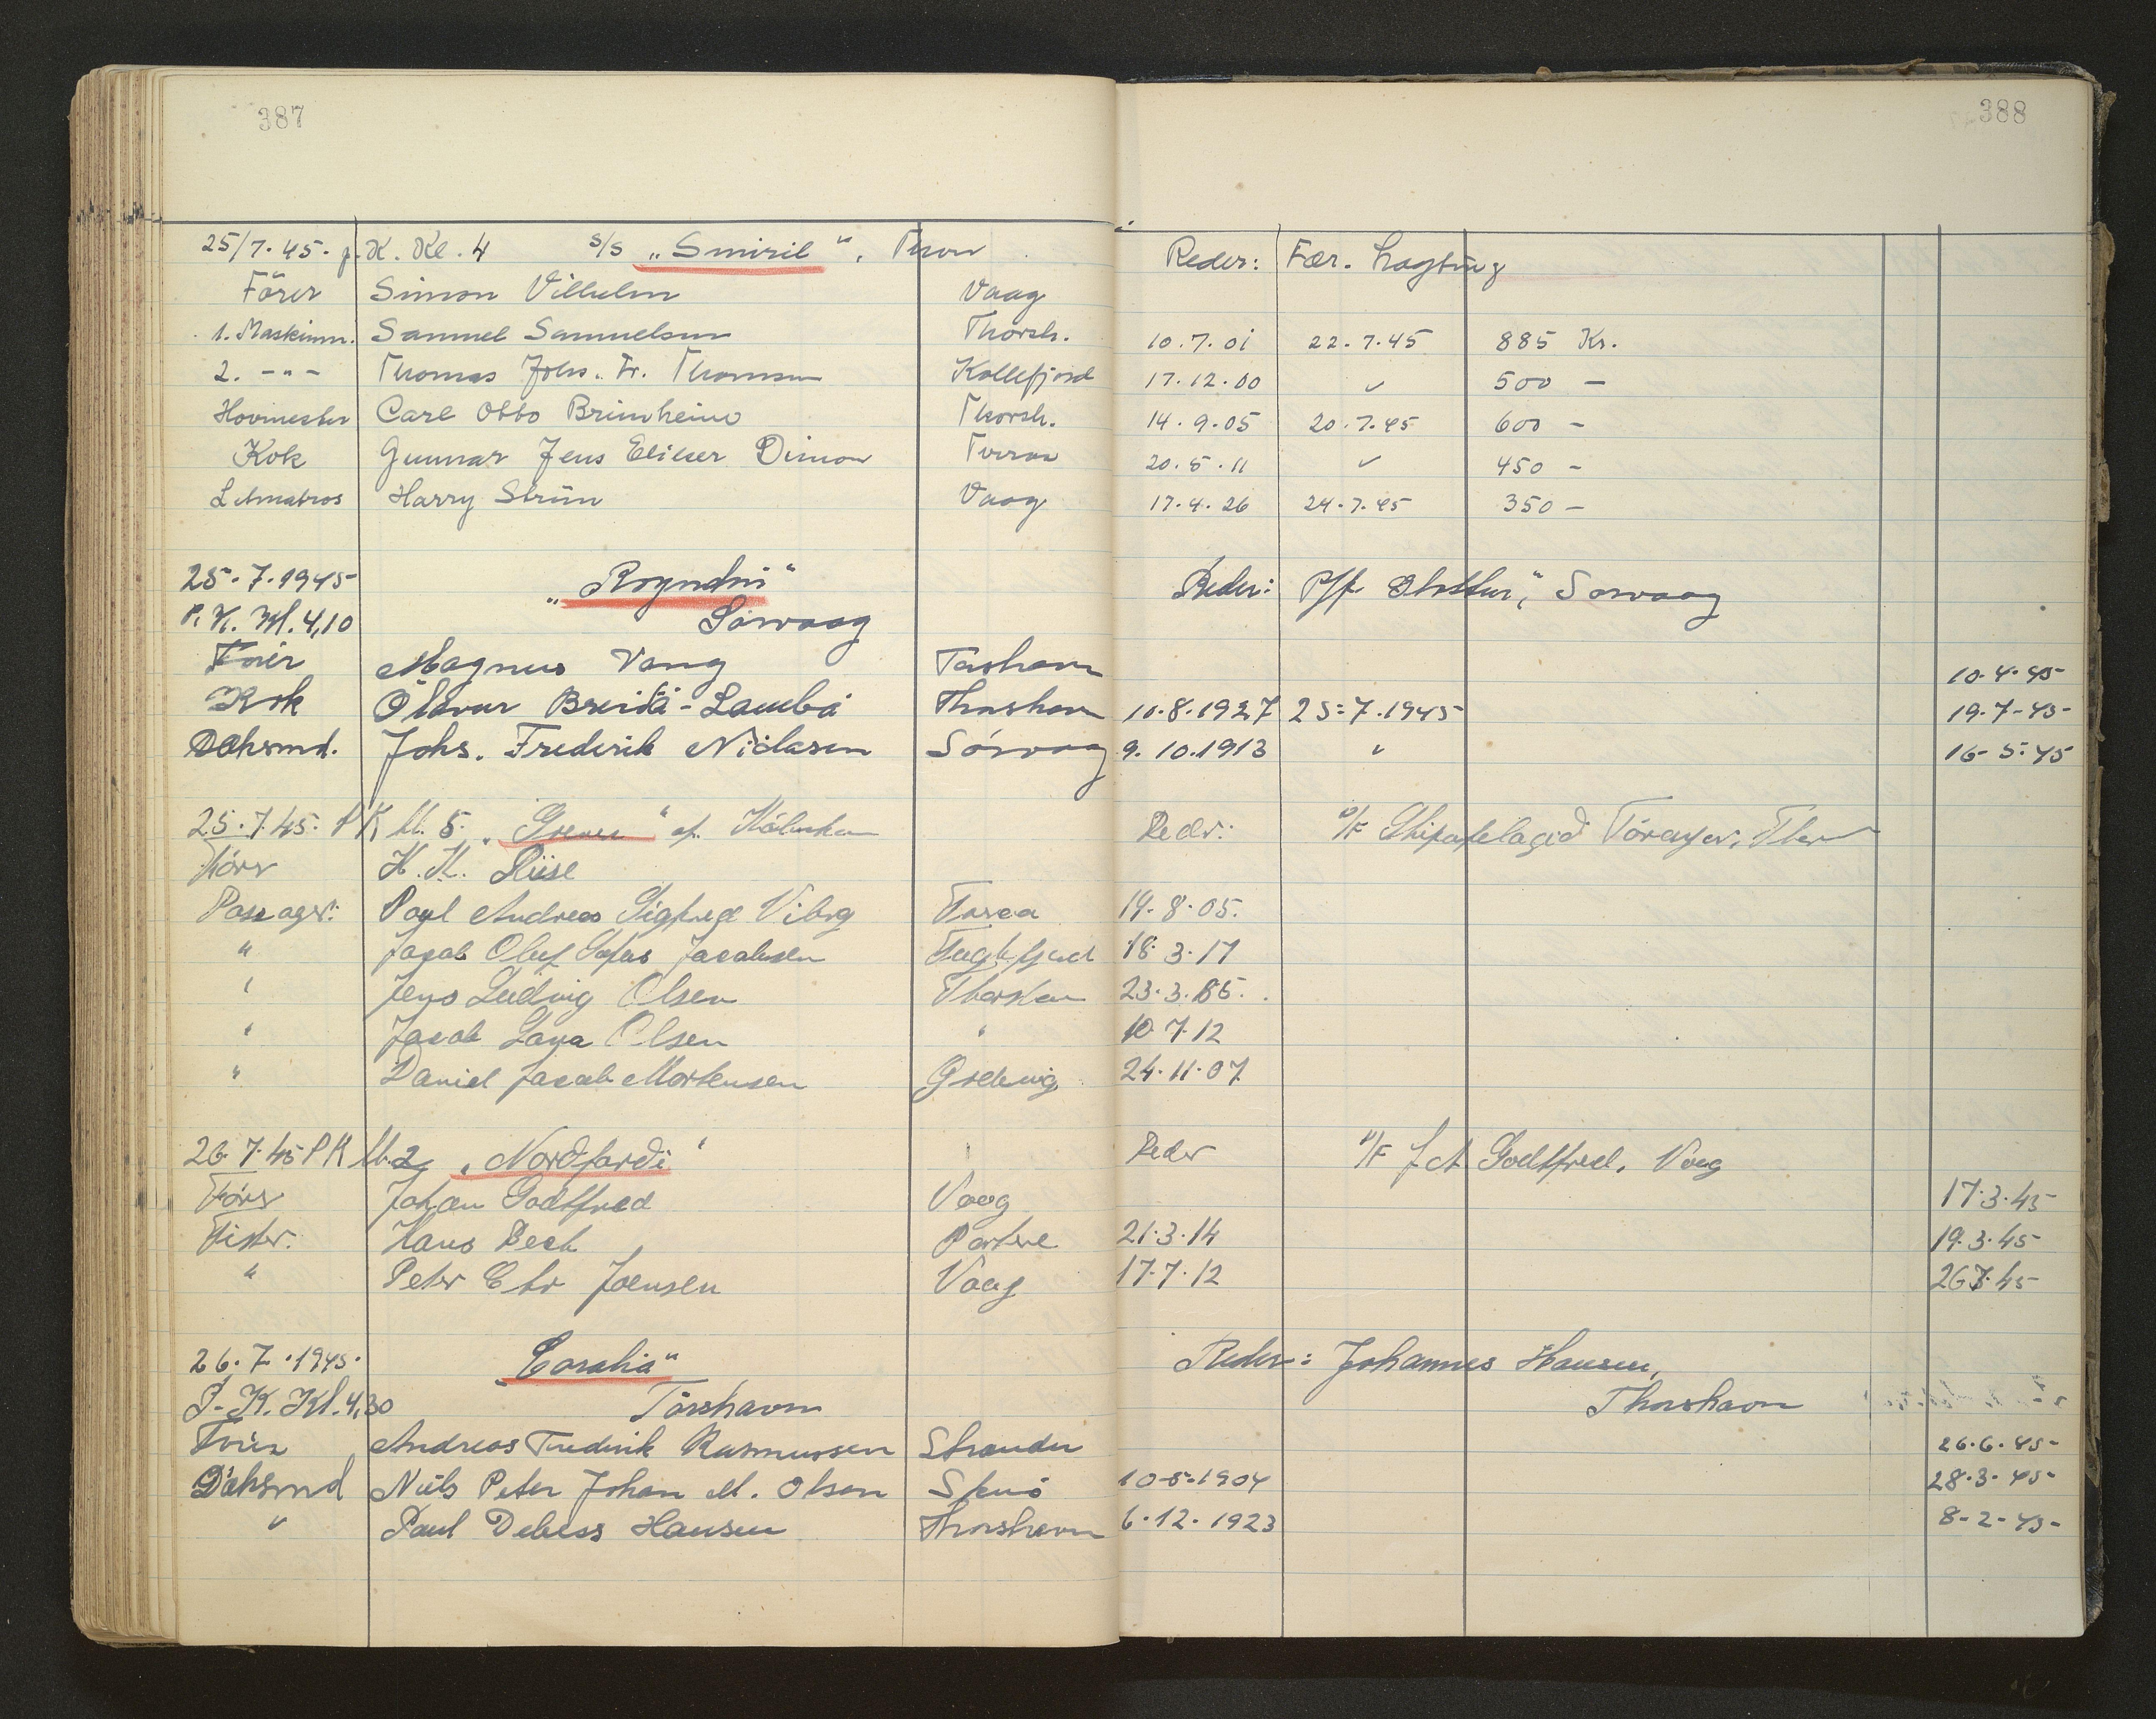 387
388
25/7.45. p.K. Kl. 4 s/s „Smiril“, Thavn Reder: Fær. Lagting
Förer Simon Vilhelm Vaag
1. Maskinm. Samuel Samuelsen Thorsh. 10.7.01 22.7.45 885 Kr.
2. -"- Thomas Johs. Fr. Thomsen Kollefjord 17.12.00 " 500 -
Hovmester Carl Otto Brimheim Thorsh. 14.9.05 20.7.45 600 -
Kok Gunnar Jens Elieser Dimon 20.5.11 " 450 -
Letmatros Harry Strøm Vaag 17.4.26 24.7.45 350 -
25.7.1945 „Royndin“ Reder: P/f Sörvaag
P.K. Kl. 4,10 Sörvaag
Förer Magnus Vang Torshavn 10.4.45
Kok Ólavur Breiðá-Lambá Thorshavn 10.8.1927 25.7.1945 19.7-45-
Dæksmd. Johs. Frederik Niclasen Sórvaag 9.10.1913 " 16-5-45
25.7.45. PK kl. 5. „Grevur“ af Reder: P/F Skipafelagid Föroyar, Thavn
Förer K. K. Riise
Passager: Poul Andreas Sigfred Viberg 19.8.05.
" Jacob Oluf Jacobsen Fuglefjord 18.3.17
" Jens Ludvig Olsen Thorshavn 23.3.
" Jacob Olsen " 10.7.12
" Daniel Jacob Mortensen 24.11.07
26.7.45 PK kl. 2 „Nordfardi“ Reder P/F J A Godtfred, Vaag
Förer Johan Godtfred Vaag 17.3.45
Fisker. Hans Bech Porkere 21.3.14 19.3.45
" Peter Chr Joensen Vaag 17.7.12 45
26.7.1945. „Coralia“ Reder: Johannes Hansen,
P.K. Kl. 4,30 Tórshavn Thorshavn
Förer Andreas Frederik Rasmussen Strender 26.6.45-
Dæksmd Niels Peter Johan M. Olsen Skuö 10-5-1904 28.3.45-
" Paul Debess Hansen Thorshavn 6.12.1923 8-2-45-